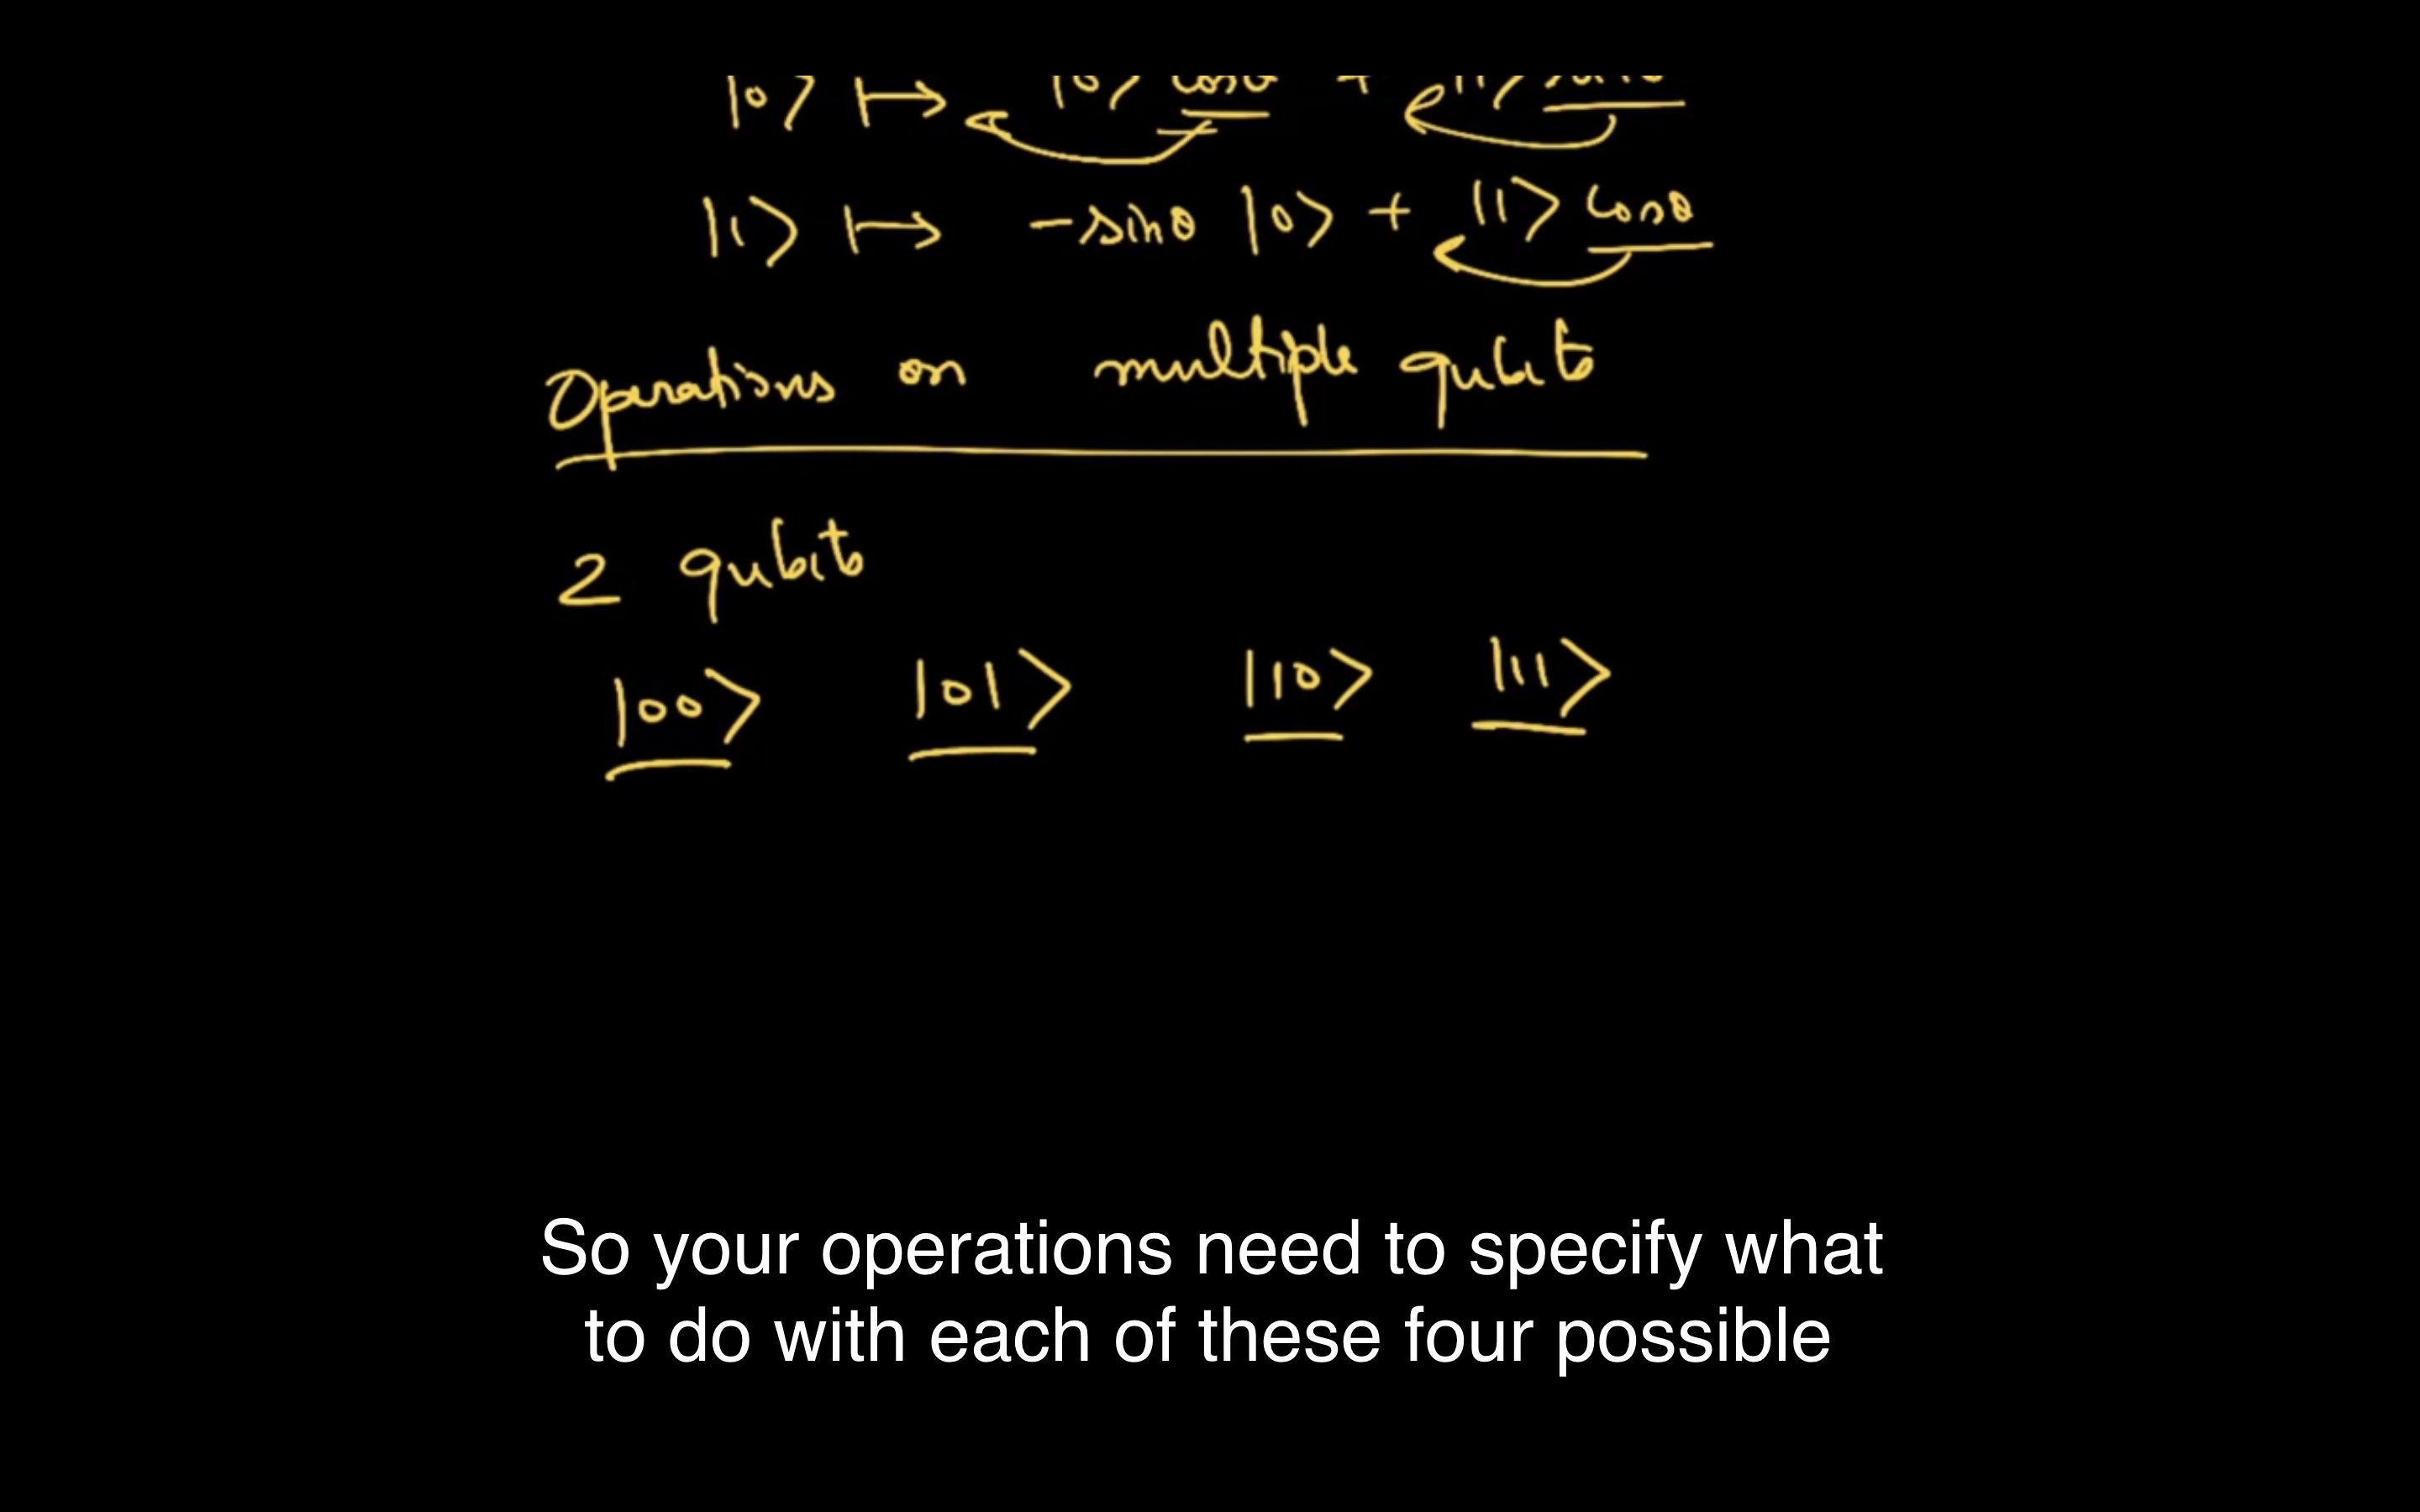 |0⟩ ↦ |0⟩ cosθ + |1⟩
|1⟩ ↦ -sinθ |0⟩ + |1⟩ cosθ
Operations on multiple qubits
2 qubits
|00⟩ |01⟩ |10⟩ |11⟩
So your operations need to specify what
to do with each of these four possible